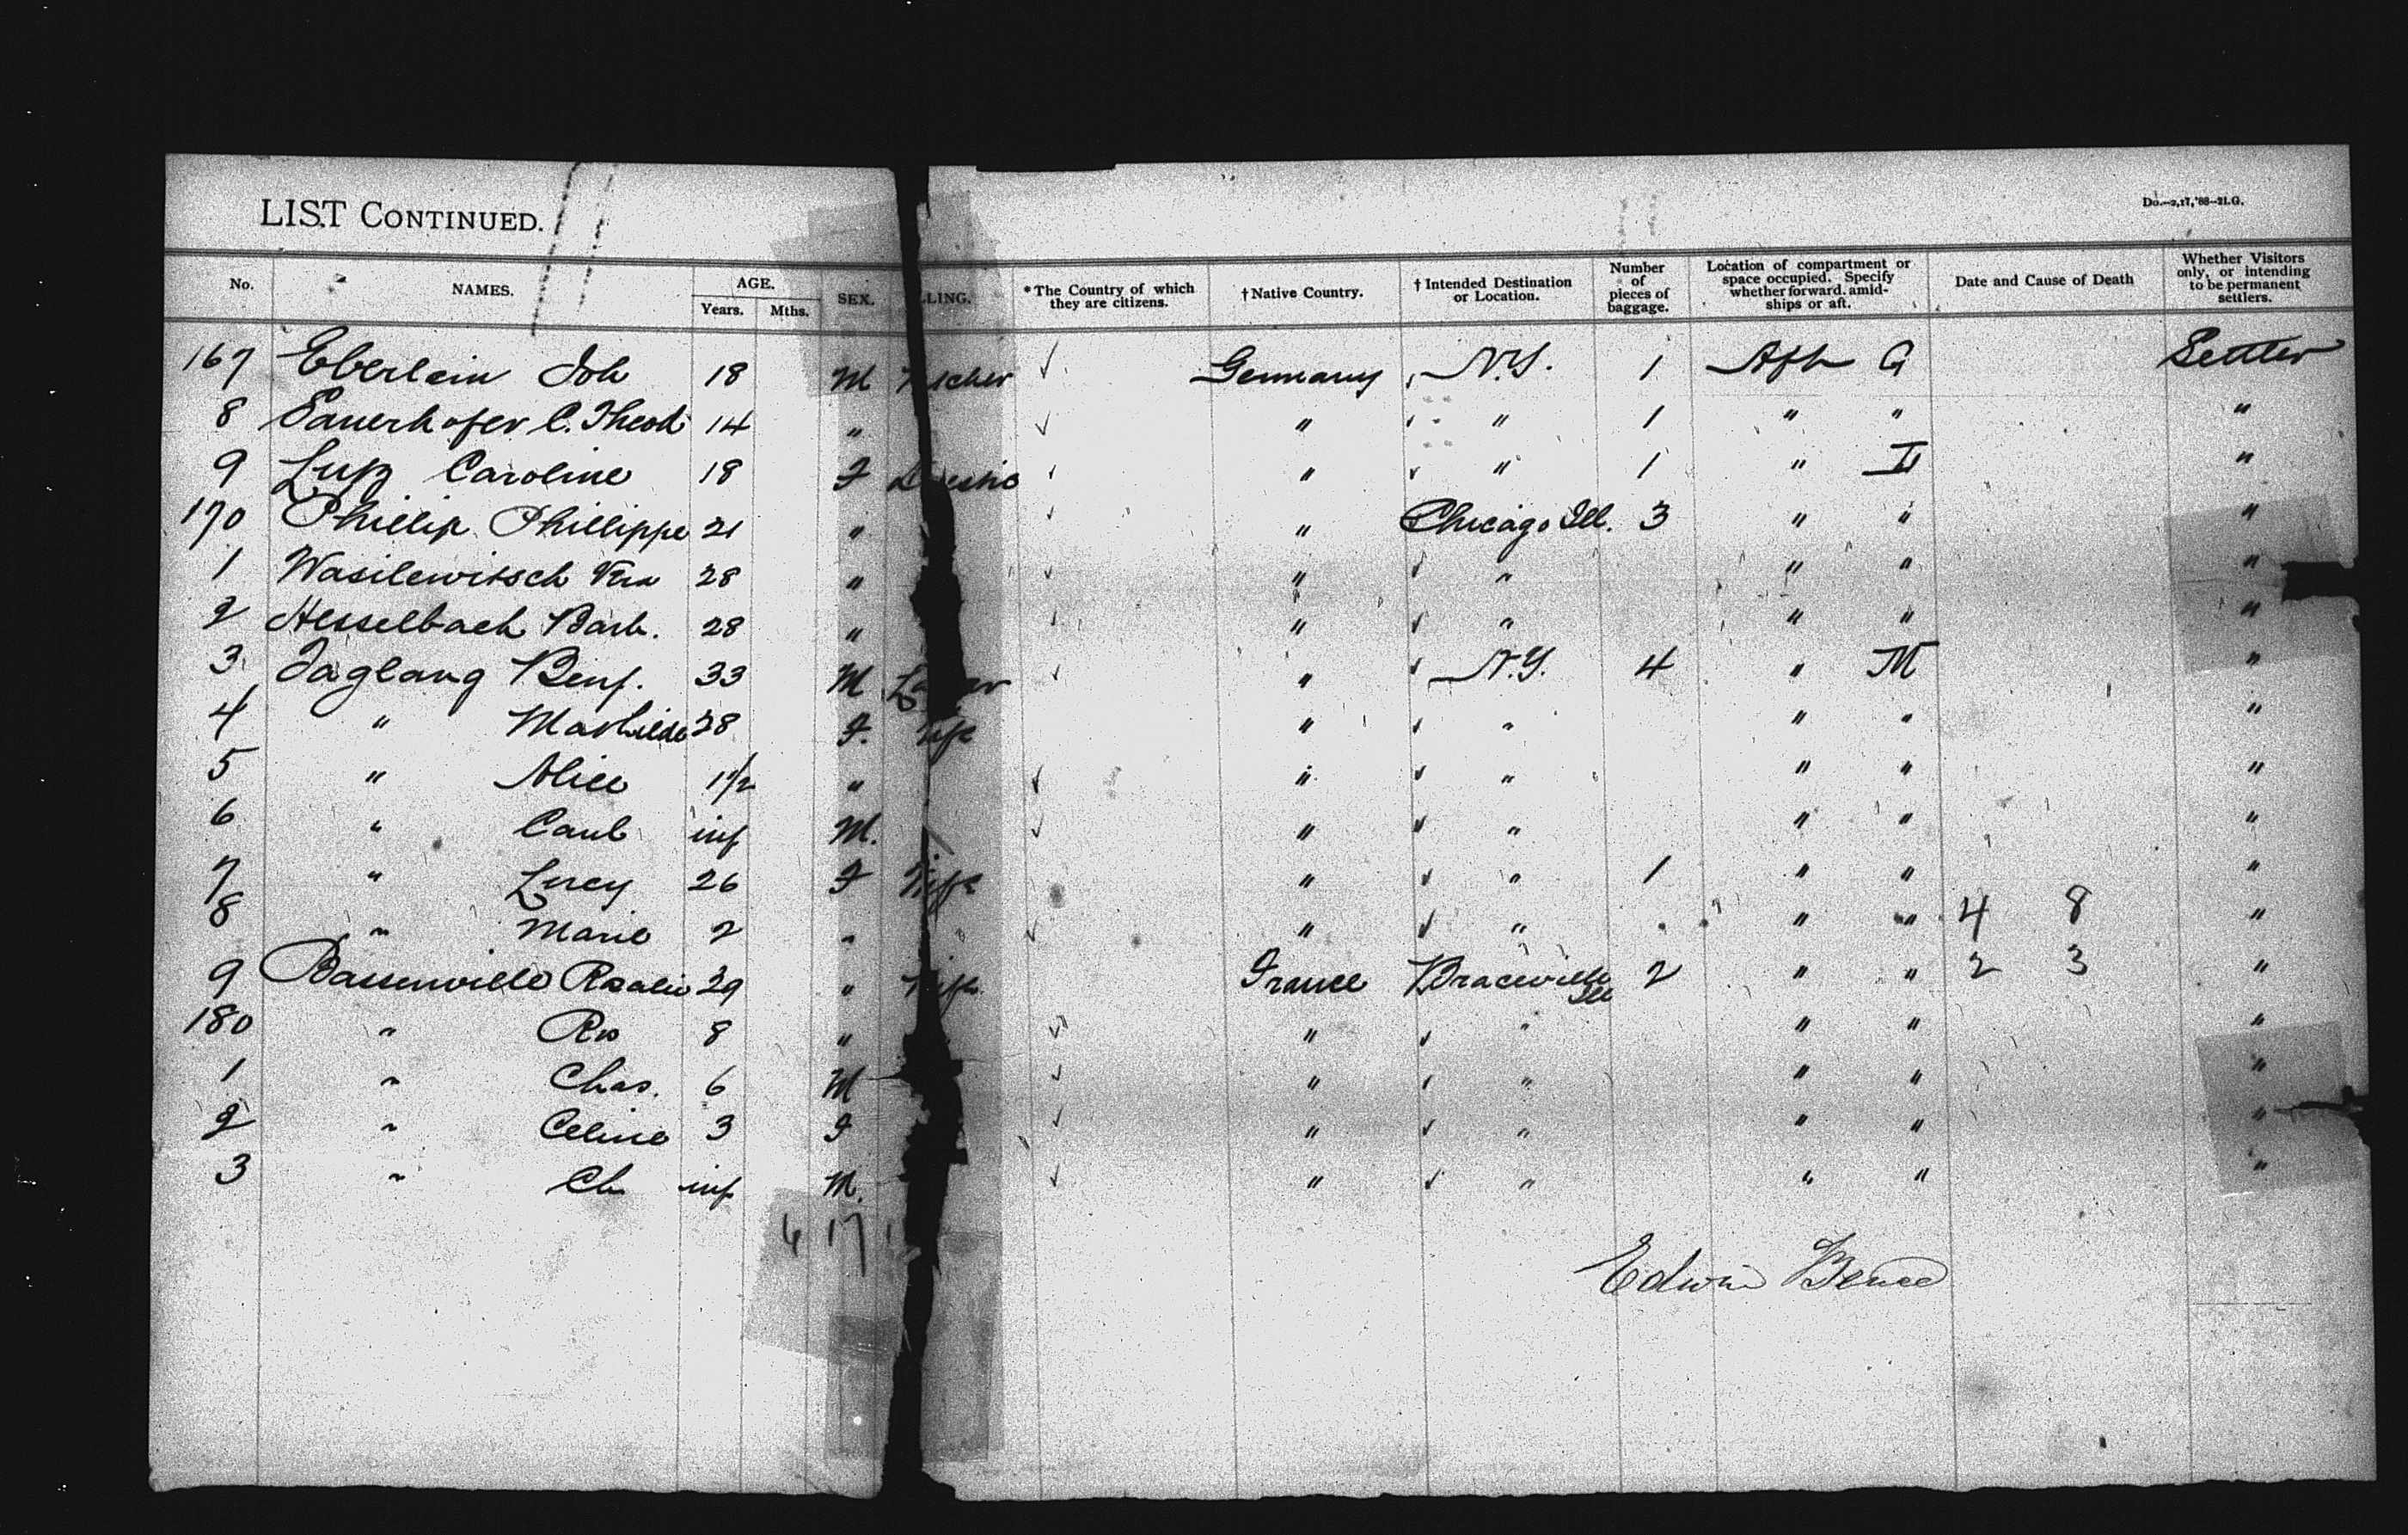 LIST CONTINUED.
Do.—2,17,'88—21.G.
No. NAMES. AGE. Years. Mths. SEX. LLING. *The Country of which they are citizens. †Native Country. †Intended Destination or Location. Number of pieces of baggage. Location of compartment or space occupied. Specify whether forward, amidships or aft. Date and Cause of Death Whether Visitors only, or intending to be permanent settlers.
167 Eberlein Joh 18 M Germany N.Y. 1 Aft G Settler
8 Sauerhofer C. Theod 14 " " " 1 " " "
9 Caroline 18 F " " 1 " "
170 Phillip Phillippe 21 " " Chicago Ill. 3 " " "
1 Wasilewitsch Vera 28 " " " " " "
2 Hesselbach Barb. 28 " " " " " "
3 Jaglang Benj. 33 M " N.Y. 4 " M "
4 " Mathilde 28 F. " " " " "
5 " Alice 1 1/2 " " " " " "
6 " inf M. " " " " "
7 " Lucy 26 F " " 1 " " "
8 " Marie 2 " " " " " 4 8 "
9 Bassenville Rosalie 29 " France Braceville Ill 2 " " 2 3 "
180 " 8 " " " " " "
1 " Chas. 6 M " " " " "
2 " Celine 3 F " " " " "
3 " Ch inf M. " " " " "
6 17 1
Edwin